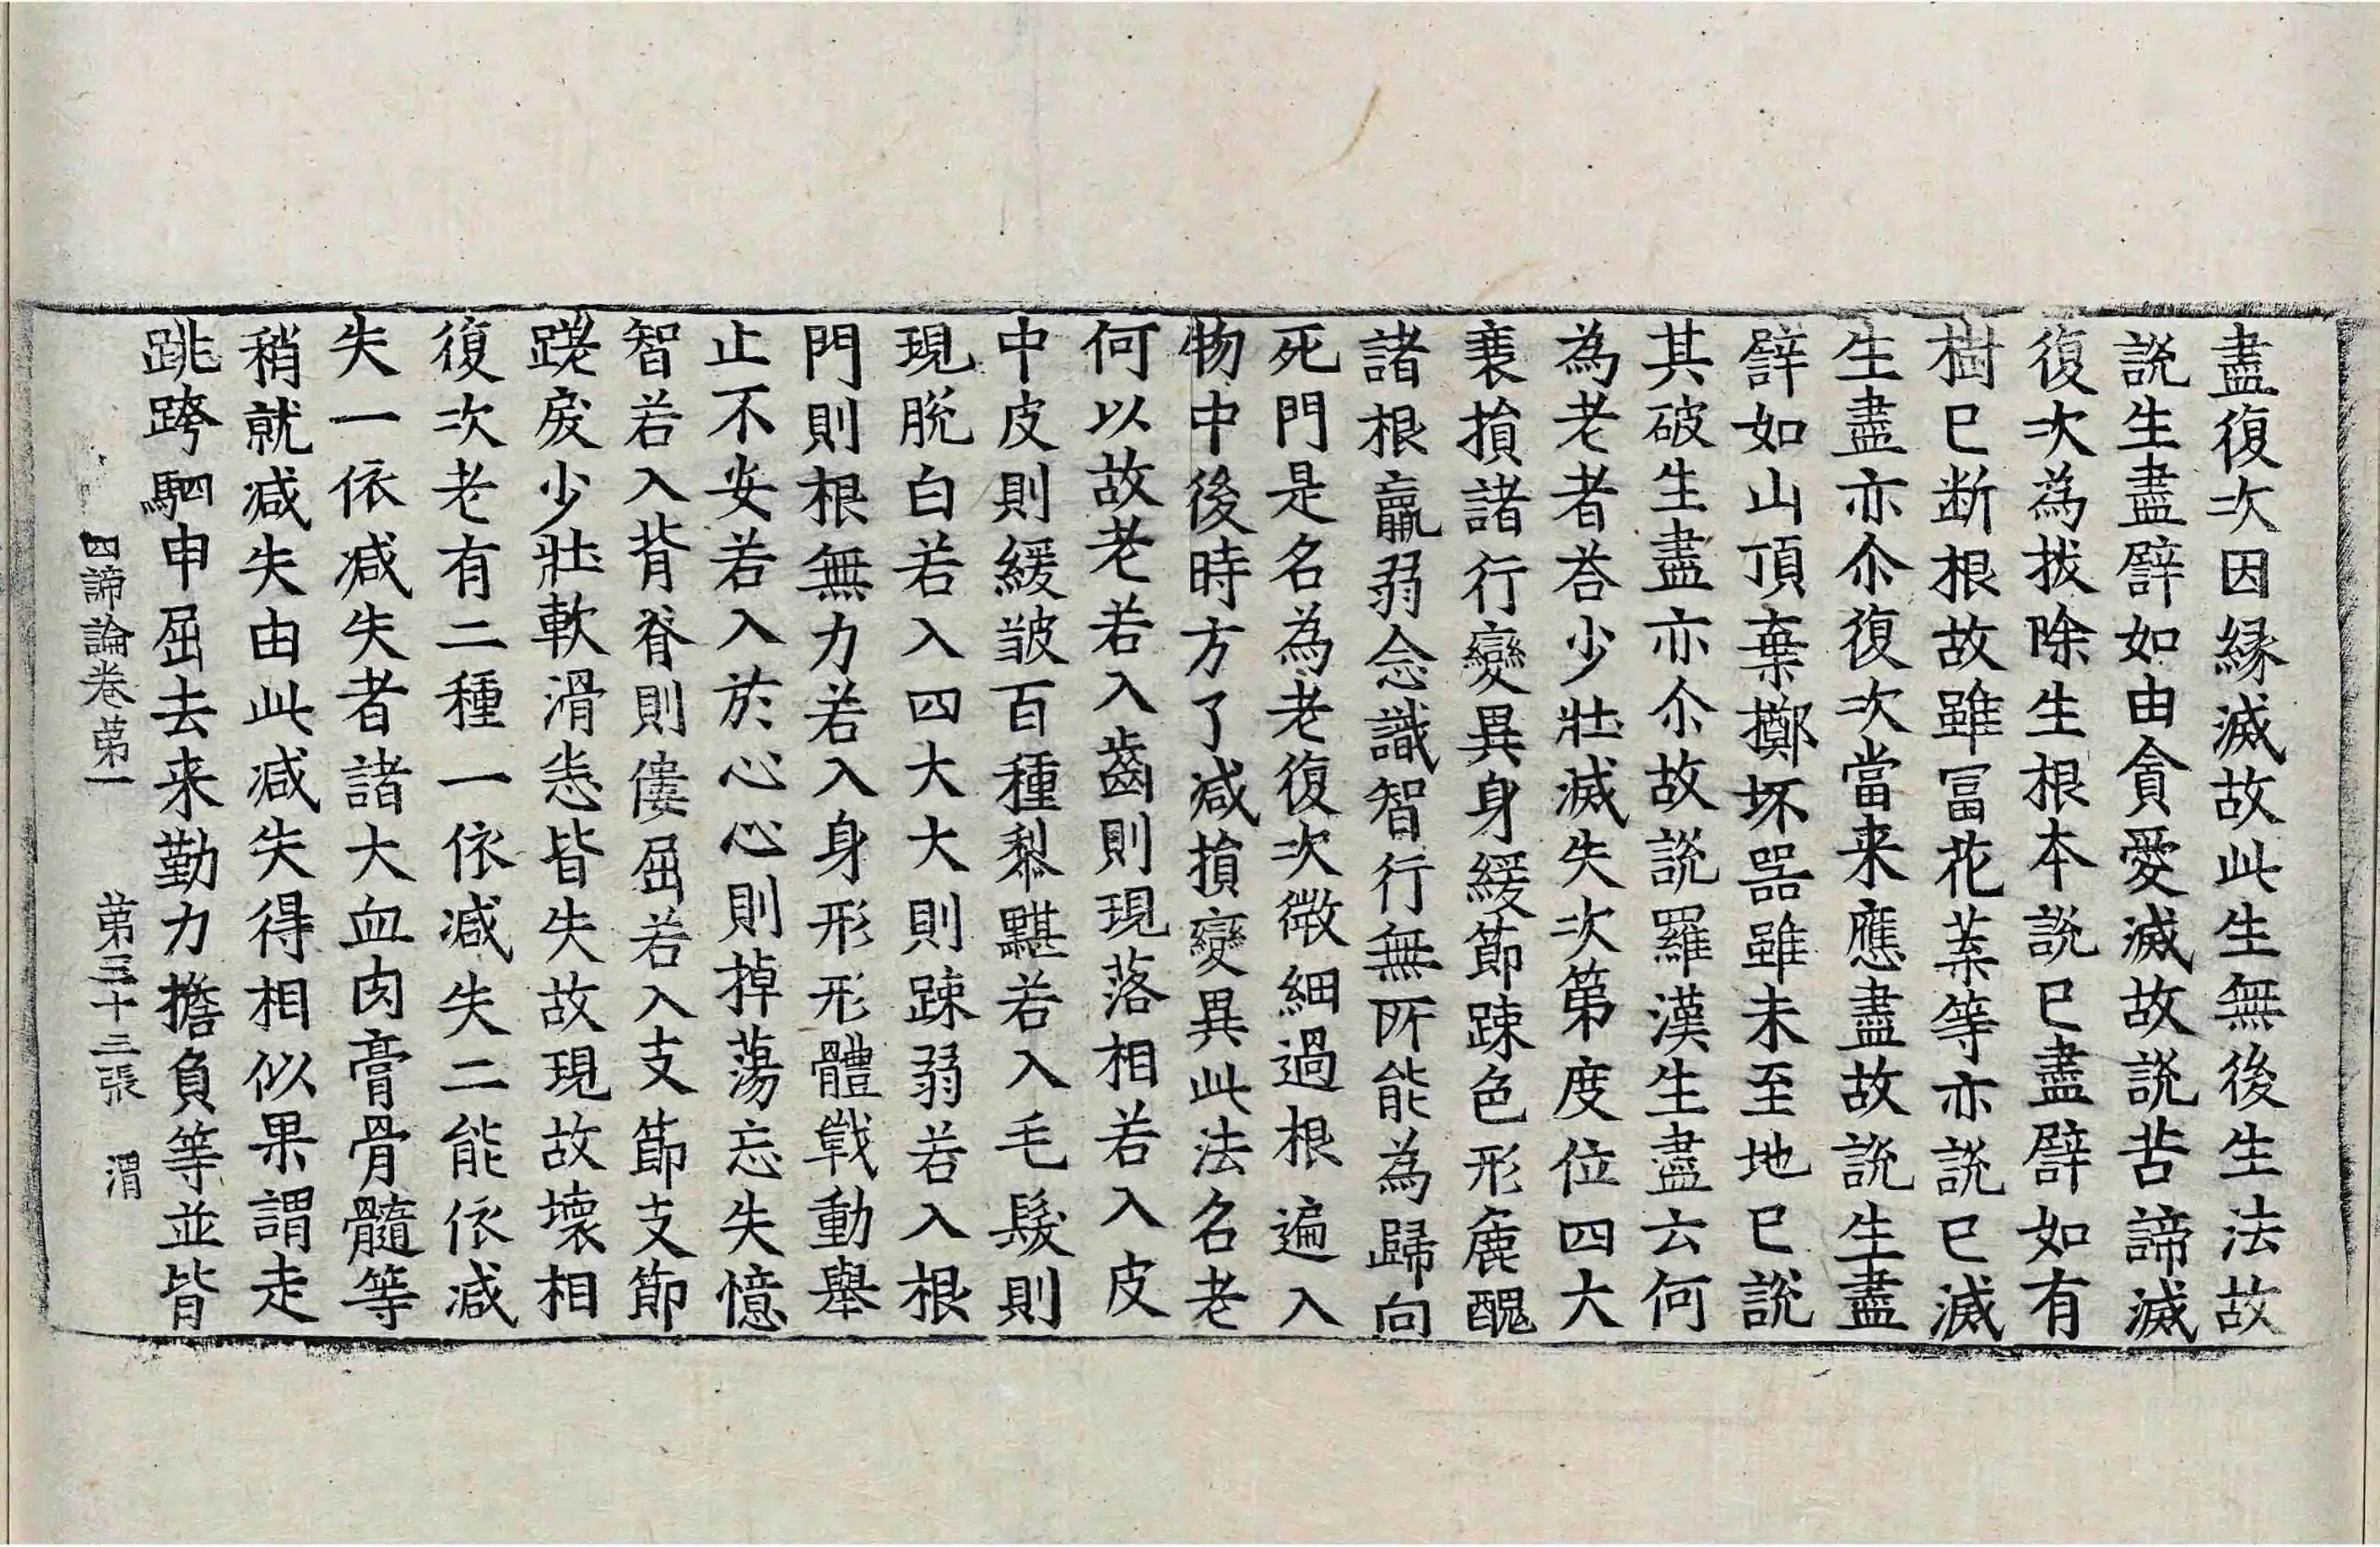 盡復次因緣滅故此生無後生法故
說生盡譬如由貪愛滅故說苦諦滅
復次為拔除生根本說已盡譬如有
樹已断根故雖冨花菓等亦說已滅
生盡亦尒復次當来應盡故說生盡
譬如山頂棄擲坏器雖未至地已說
其破生盡亦尒故說羅漢生盡云何
為老者荅少壯滅失次第度位四大
衰損諸行變異身緩節踈色形麁醜
諸根羸弱念識智行無所能為歸向
死門是名為老復次微細過根遍入
物中後時方了减損變異此法名老
何以故老若入齒則現落相若入皮
中皮則緩皺百種黎黮若入毛髮則
現脫白若入四大大則踈弱若入根
門則根無力若入身形形體戰動舉
止不安若入於心心則掉蕩忘失憶
智若入背脊則僂屈若入支節支節
蹉戾少壯軟滑恚皆失故現故壞相
復次老有二種一依减失二能依减
失一依减失者諸大血肉膏骨髓等
稍就减失由此减失得相似果謂走
跳跨駟申屈去来勤力擔負等並皆
四諦論卷苐一 苐三十三張 渭